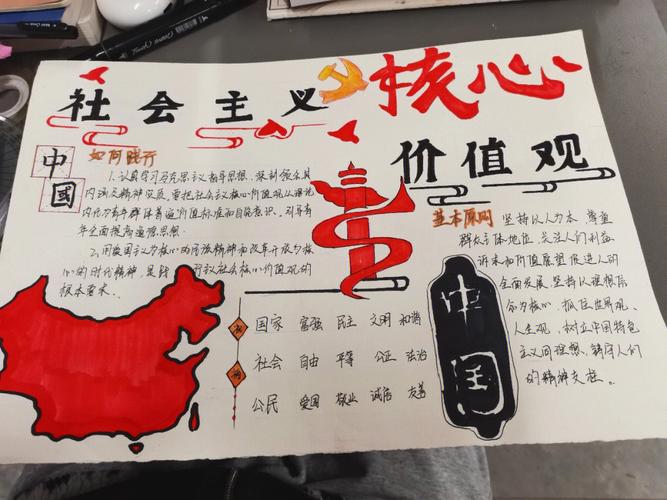 社会主义核心
价值观
中國
如何践行
1、认真学习马克思主义指导思想，深刻领会其
内涵及精神实质，要把社会主义核心价值观从理论
内化为青年群体普遍价值标准和自觉意识，引导青
年全面提高道德思想。
2、用爱国主义为核心的民族精神和改革开放为核
心的时代精神，是践 社会核心价值观的
根本要求。
基本原则
坚持以人为本，尊重
群众主体地位，关注人们利益
诉求和价值愿望，促进人的
全面发展，坚持以理想信
念为核心，抓住世界观、
人生观，树立中国特色
主义同理想，铸牢人们
的精神支柱。
国家 富强 民主 文明 和谐
社会 自由 平等 公正 法治
公民 爱国 敬业 诚信 友善
中国